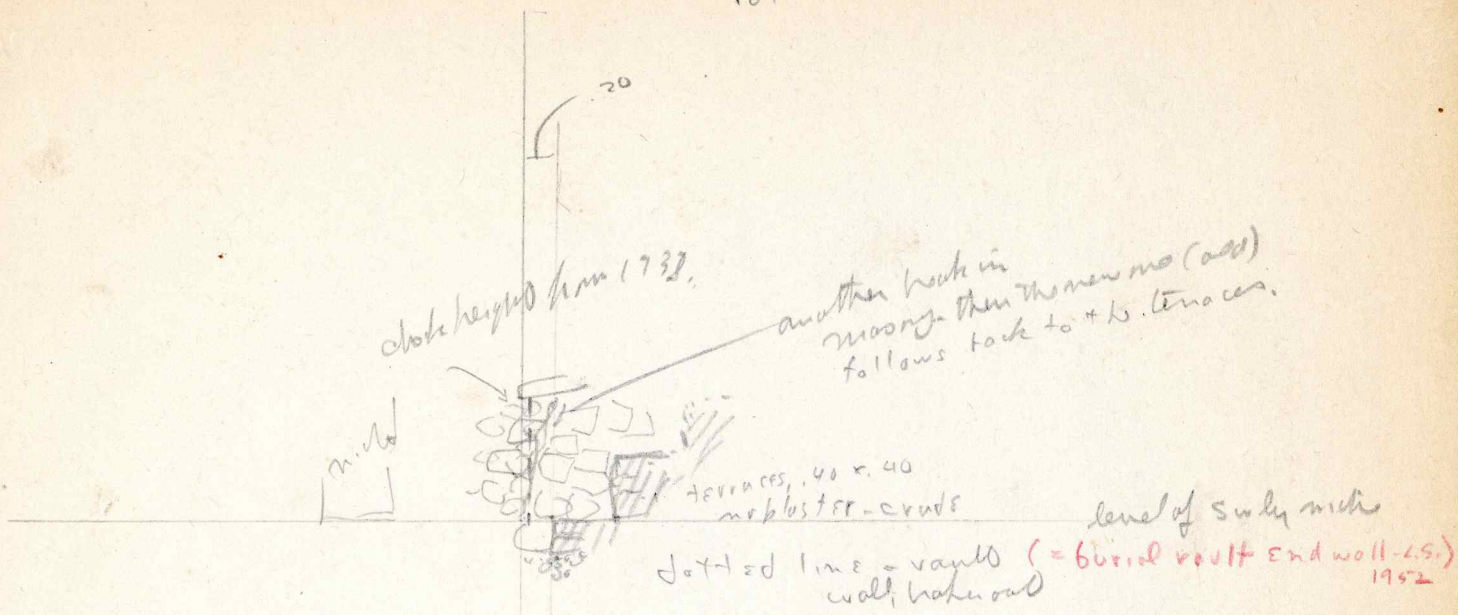 .20
check heights from 1938.
another break in
masonry - then the new one (add)
follows back to + w. terraces.
niche
terraces, .40 x .40
no plaster - crude
level of S niche
dotted line = vault (= burial vault end wall - L.S.)
1952
wall,